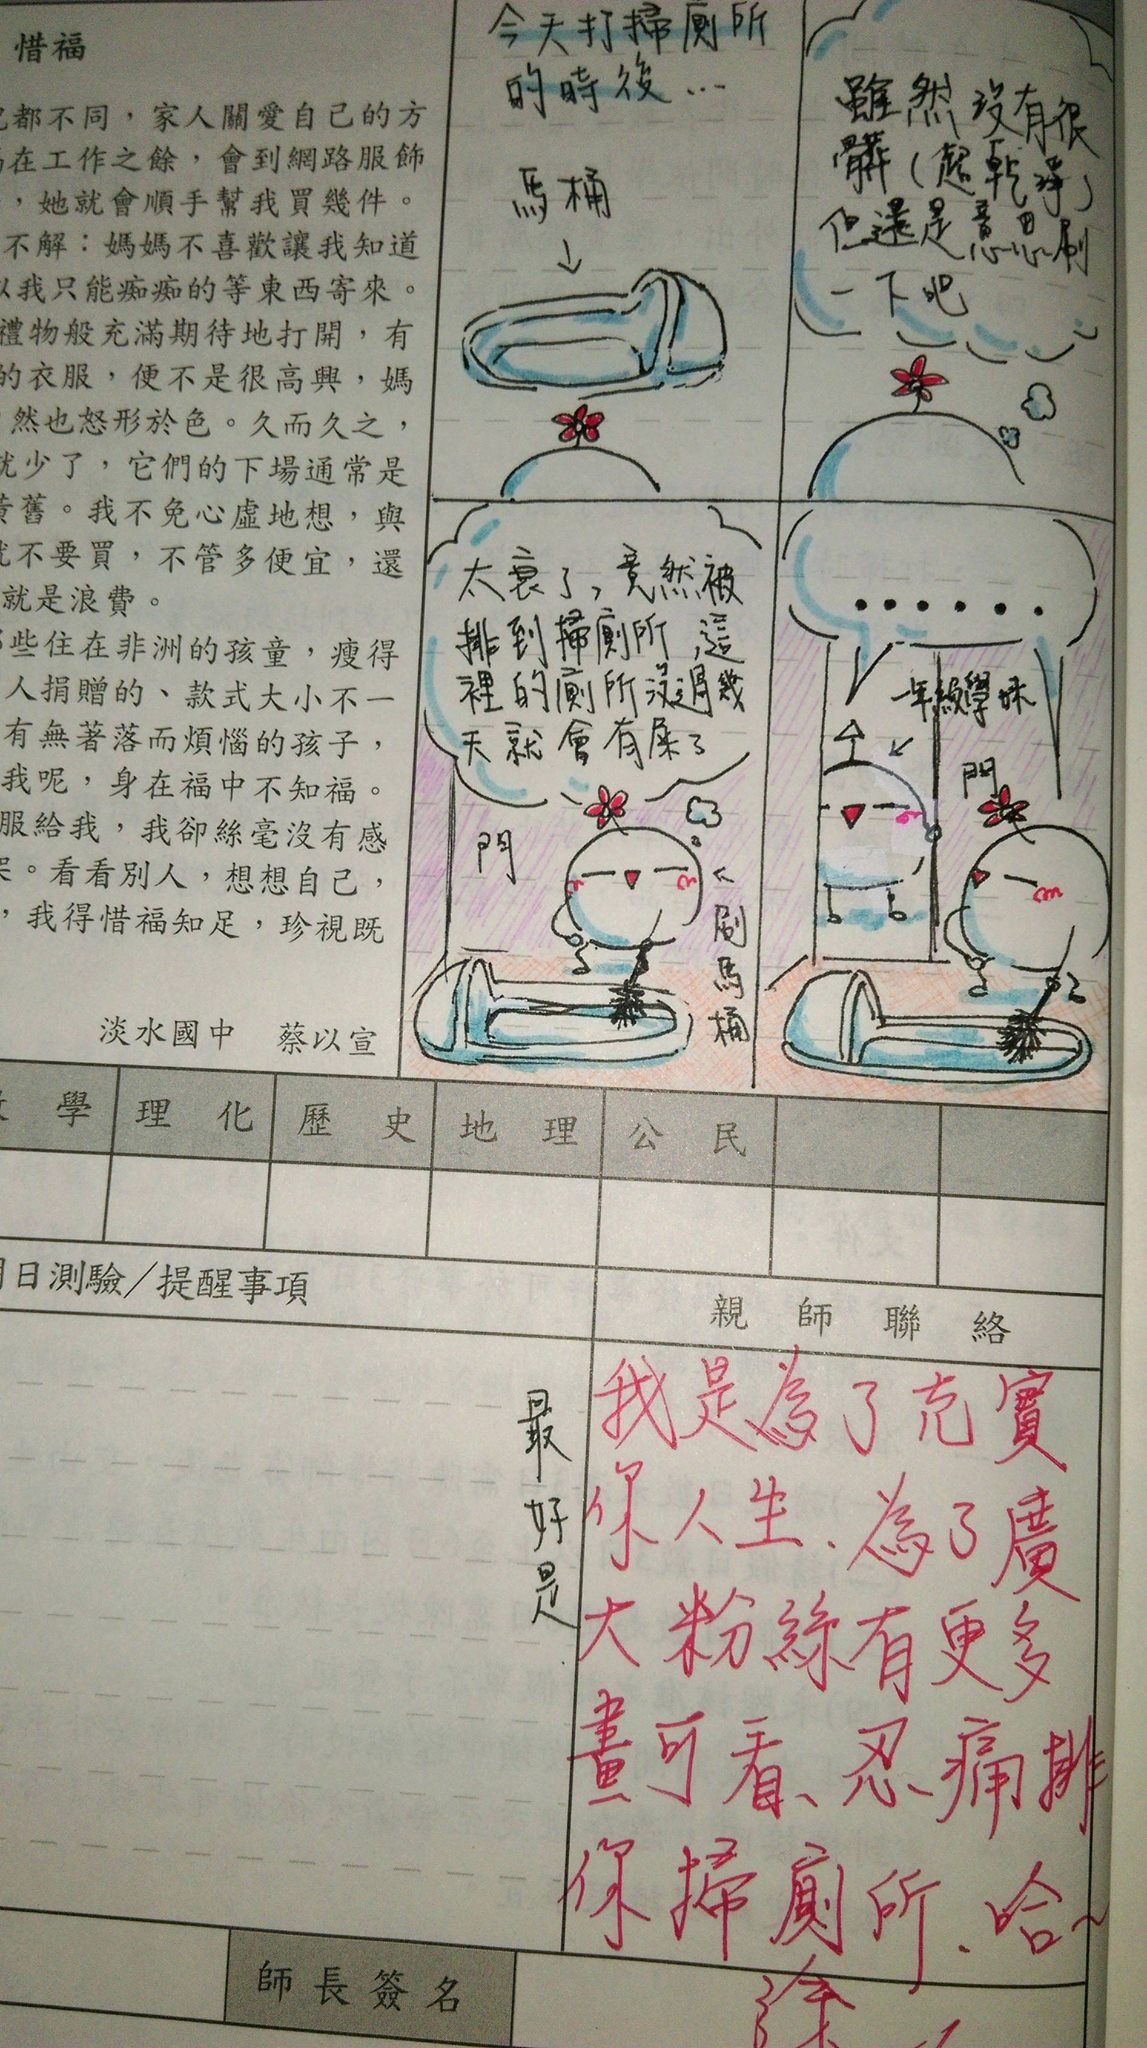 惜福
都不同，家人關愛自己的方
在工作之餘，會到網路服飾
，她就會順手幫我買幾件。
不解：媽媽不喜歡讓我知道
以我只能痴痴的等東西寄來。
禮物般充滿期待地打開，有
的衣服，便不是很高興，媽
然也怒形於色。久而久之，
就少了，它們的下場通常是
黃舊。我不免心虛地想，與
就不要買，不管多便宜，還
就是浪費。
那些住在非洲的孩童，瘦得
人捐贈的、款式大小不一
有無著落而煩惱的孩子，
我呢，身在福中不知福。
服給我，我卻絲毫沒有感
。看看別人，想想自己，
，我得惜福知足，珍視既
淡水國中 蔡以宣
今天打掃廁所
的時後...
馬桶
雖然沒有很
髒（超乾淨）
但還是意思刷
一下吧
太衰了，竟然被
排到掃廁所，這
裡的廁所沒過幾
天就會有屎了
門
刷馬桶
......
一年級學妹
門
學 理化 歷史 地理 公民
明日測驗／提醒事項
親師聯絡
最好是
我是為了充實
你人生、為了廣
大粉絲有更多
畫可看、忍痛排
你掃廁所、哈~
師長簽名
徐